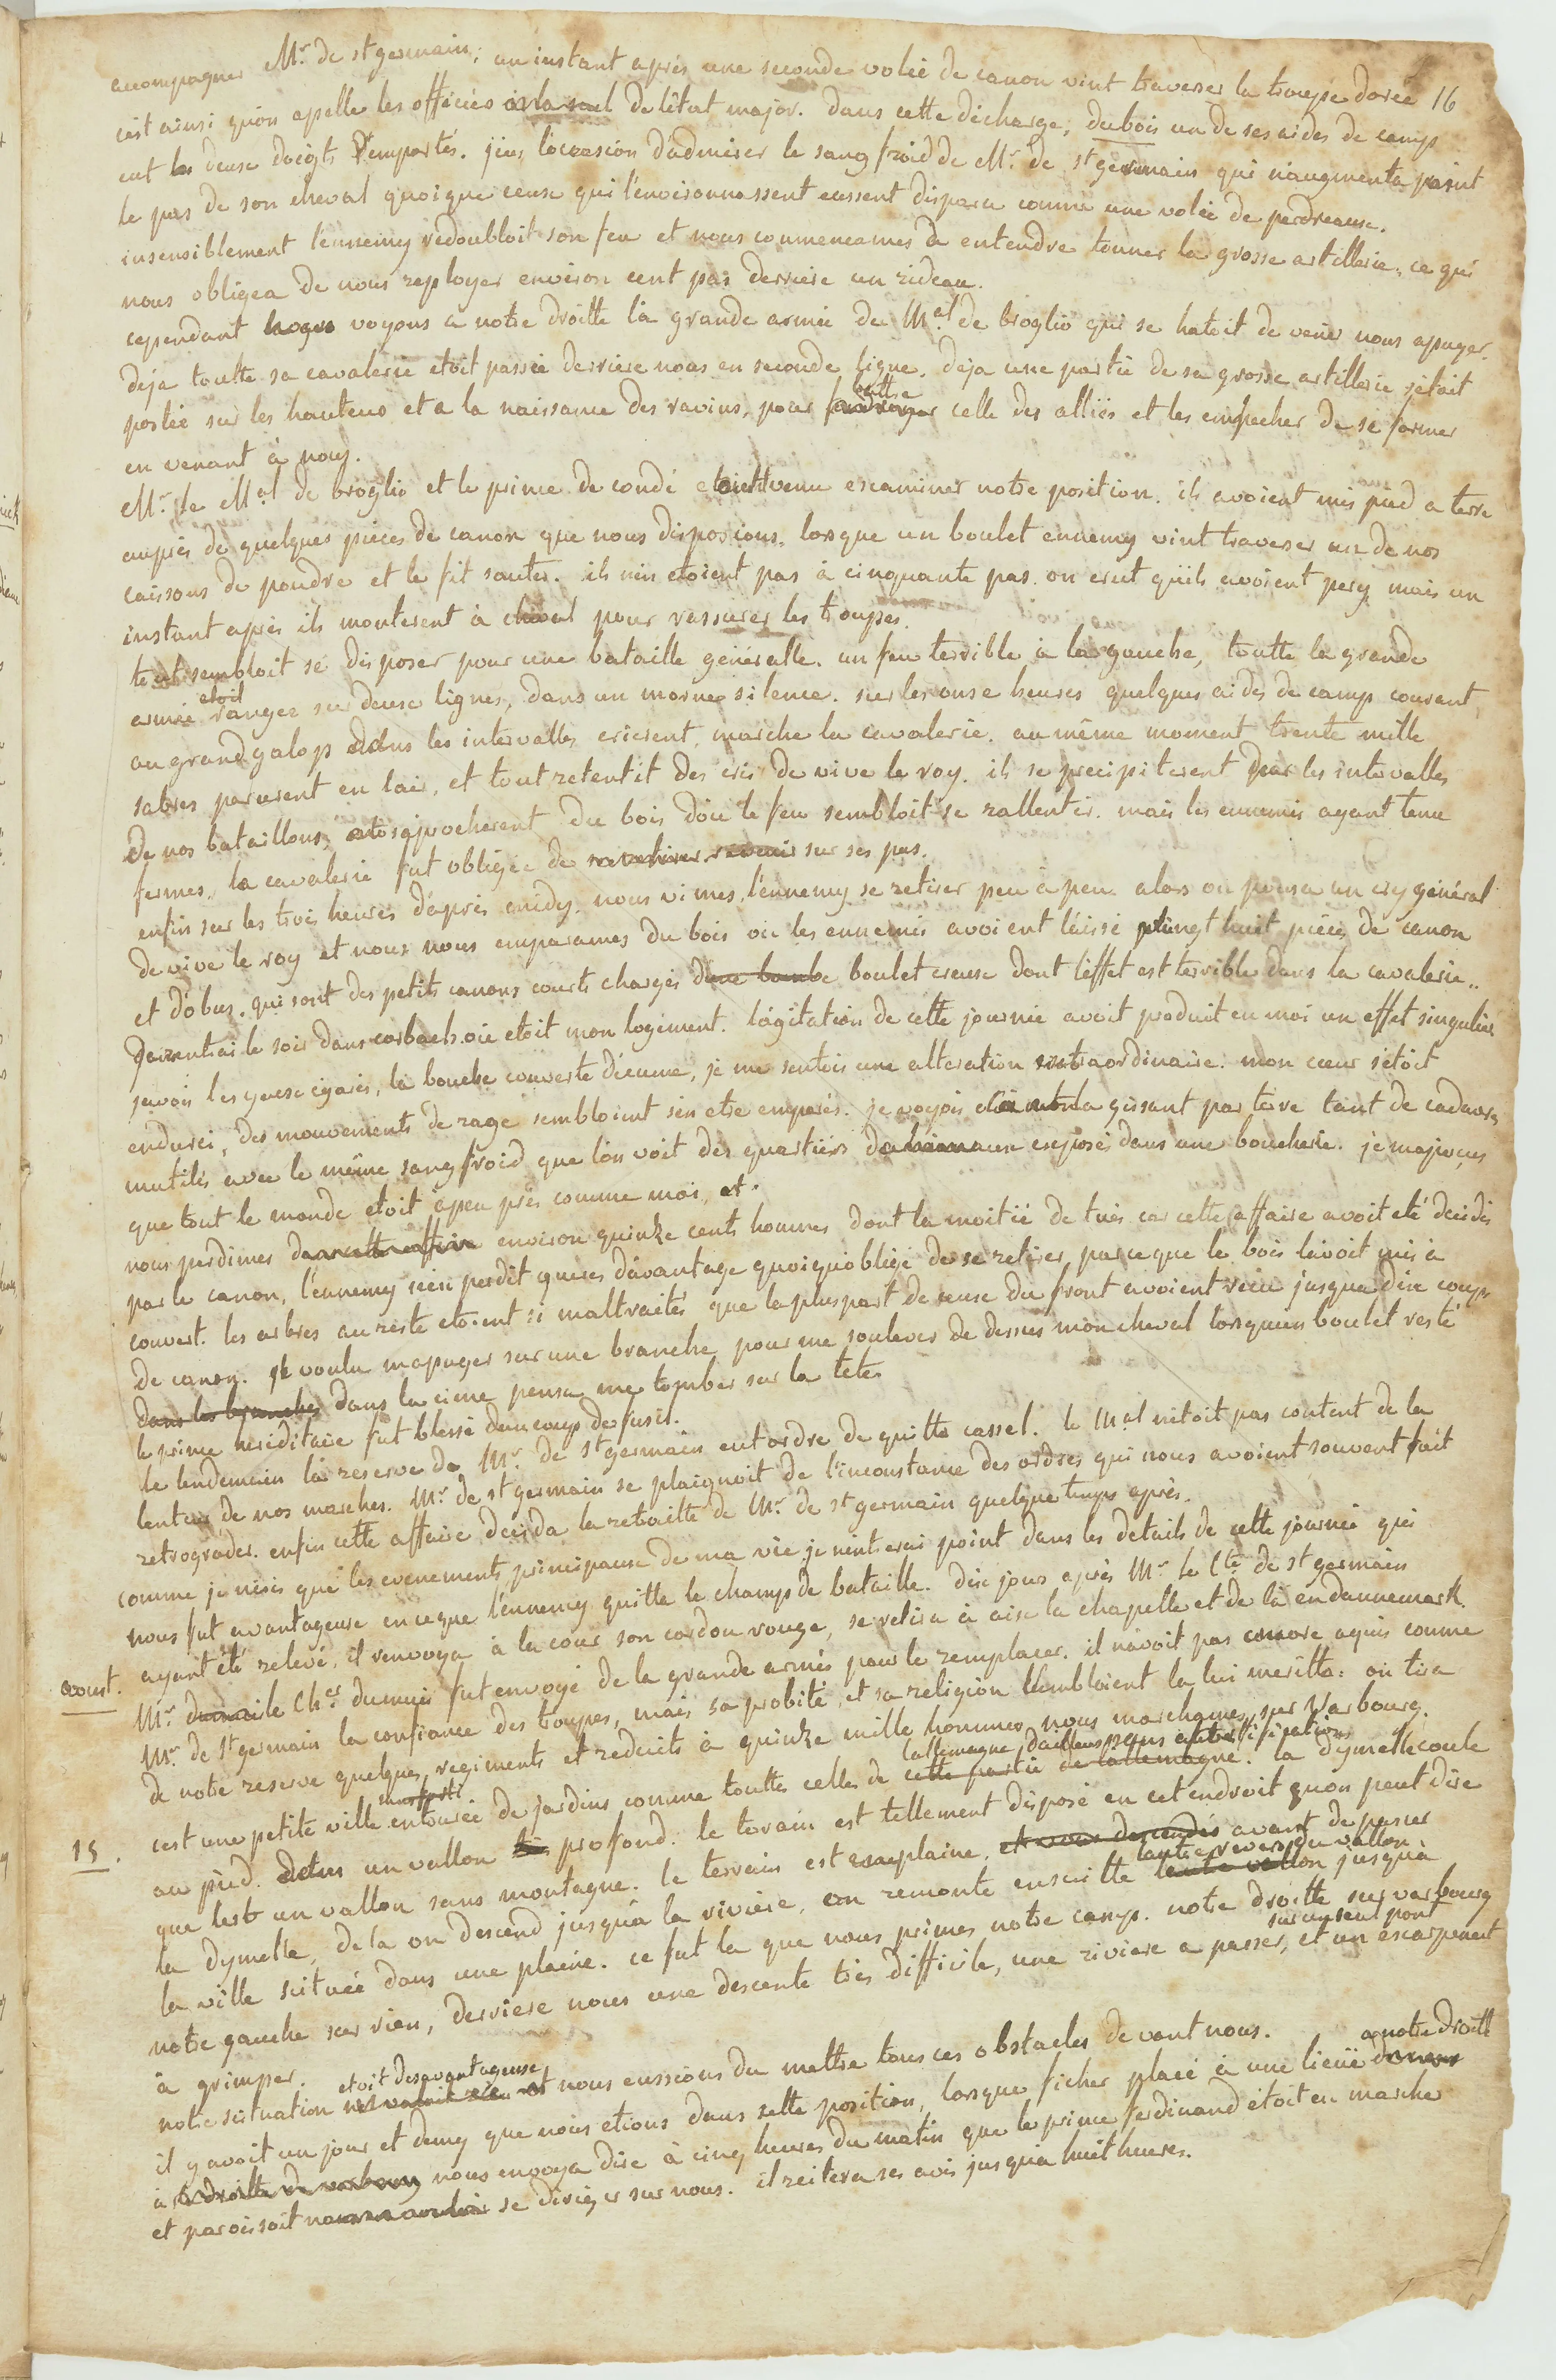 accompagner Mr. de st germain; un instant aprés une seconde volée de canon vint traverser la troupe dorée 16
c'est ainsi qu'on apelle les officiers de l'état major. dans cette décharge, dubois un de ses aides de camp
eut les deux doigts emportés. j'eus l'occasion d'admirer le sang froid de Mr. de st germain qui n'augmenta point
le pas de son cheval quoique ceux qui l'environnassent eussent disparu comme une volée de perdreaux.
insensiblement l'ennemy redoubloit son feu et nous commencames à entendre tonner la grosse artillerie, ce qui
nous obligea de nous reployer environ cent pas derriere un rideau.
cependant nous voyons a notre droitte la grande armée de Mal de broglio qui se hatoit de venir nous apuyer.
deja toutte sa cavalerie etoit passée derriere nous en seconde ligne. deja une partie de sa grosse artillerie s'étoit
postée sur les hauteurs et a la naissance des ravins, pour battre celle des alliés et les empecher de se former
en venant à nous.
Mr. le Mal de broglio et le prince de condé etoient venu examiner notre position. ils avoient mis pied a terre
auprés de quelques piéces de canon que nous disposions, lorsque un boulet ennemy vint traverser un de nos
caissons de poudre et le fit sauter. ils n'en etoient pas à cinquante pas. on crut qu'ils avoient pery mais un
instant aprés ils monterent à cheval pour rassurer les troupes.
tout sembloit se disposer pour une bataille généralle. un feu terrible à la gauche, toutte la grande
armée etoit rangee sur deux lignes, dans un morne silence. sur les onze heures quelques aides de camp courant
au grand galop dans les intervalles crierent, marche la cavalerie. au même moment trente mille
sabres parurent en l'air, et tout retentit des cris de vive le roy. ils se precipiterent par les intervalles
de nos bataillons, et s'aprocherent du bois d'où le feu sembloit se rallentir. mais les ennemis ayant tenu
fermes, la cavalerie fut obligée de revenir sur ses pas.
enfin sur les trois heures d'aprés midy, nous vimes l'ennemy se retirer peu à peu. alors on poussa un cry général
de vive le roy et nous nous emparames du bois où les ennemis avoient laissé vingt huit piéces de canon
et d'obus, qui sont des petits canons courts chargés d'une bombe boulet creux dont l'effet est terrible dans la cavalerie..
Je rentrai le soir dans corbach où etoit mon logement. l'agitation de cette journée avoit produit en moi un effet singulier
j'avois les yeux égarés, la bouche couverte d'écume, je me sentois une alteration extraordinaire. mon cœur s'étoit
endurci, des mouvements de rage sembloient s'en etre emparés. je voyois gissant par terre tant de cadavres
mutilés avec le même sang froid que l'on voit des quartiers exposé dans une boucherie. je m'aperçus
que tout le monde etoit àpeu prés comme moi, et.
nous perdimes dans cette affaire environ quinze cents hommes dont la moitié de tués car cette affaire avoit eté décidée
par le canon, l'ennemy n'en perdit gueres d'avantage quoiqu'obligé de se retirer, parceque le bois l'avoit mis à
couvert. les arbres au reste etoient si maltraités que la pluspart de ceux du front avoient recu jusqu'a dix coups
de canon. je voulu m'apuyer sur une branche pour me soulever de dessus mon cheval lorsqu'un boulet resté
dans les branches dans la cime pensa me tomber sur la tete.
le prince hereditaire fut blessé d'un coup de fusil.
le lendemain la reserve de Mr. de st germain eut ordre de quitter cassel. le Mal n'etoit pas content de la
lenteur de nos marches. Mr. de st germain se plaignoit de l'inconstance des ordres qui nous avoient souvent fait
retrograder. enfin cette affaire decida la retraitte de Mr. de st germain quelque temps aprés.
comme je n'écris que les evenements principaux de ma vie je n'entrerai point dans les details de cette journée qui
nous fut avantageuse en ceque l'ennemy quitta le champ de bataille. dix jours aprés Mr. le Cte de st germain
aoust. ayant été relevé, il renvoya à la cour son cordon rouge, se retira à aix la chapelle et de là en dannemark.
Mr. le Cher dumuis fut envoyé de la grande armée pour le remplacer. il n'avoit pas encore aquis comme
Mr. de st germain la confiance des troupes, mais sa probité et sa religion sembloient la lui meritter. on tira
de notre reserve quelques regiments et reduits à quinze mille hommes nous marchames sur Warbourg.
15. c'est une petite ville entourée de jardins comme touttes celles de cette partie de l'allemagne. l'allemagne, d'ailleurs sans fortifications la dymelle coule
au pied. dans un vallon profond. le terrain est tellement disposé en cet endroit qu'on peut dire
que c'est un vallon sans montagne. le terrain est en plaine, et vous descendés avant de passer
la dymelle, de la on descend jusqu'à la riviere, on remonte ensuitte l'autre revers du vallon jusqu'à
la ville scituée dans une plaine. ce fut la que nous primes notre camp. notre droitte sur varbourg
notre gauche sur rien, derriere nous une descente trés difficile, une riviere a passer, sur un seul pont et un escarpement
à grimper.
notre scituation etoit desavantageuse, nous eussions du mettre tous ces obstacles devant nous.
il y avoit un jour et demy que nous etions dans cette position, lorsque ficher placé à une lieüe a notre droitte
à la droitte de varbourg nous envoya dire à cinq heures du matin que le prince ferdinand étoit en marche
et paroissoit se diriger sur nous. il reitera ses avis jusqu'a huit heures.